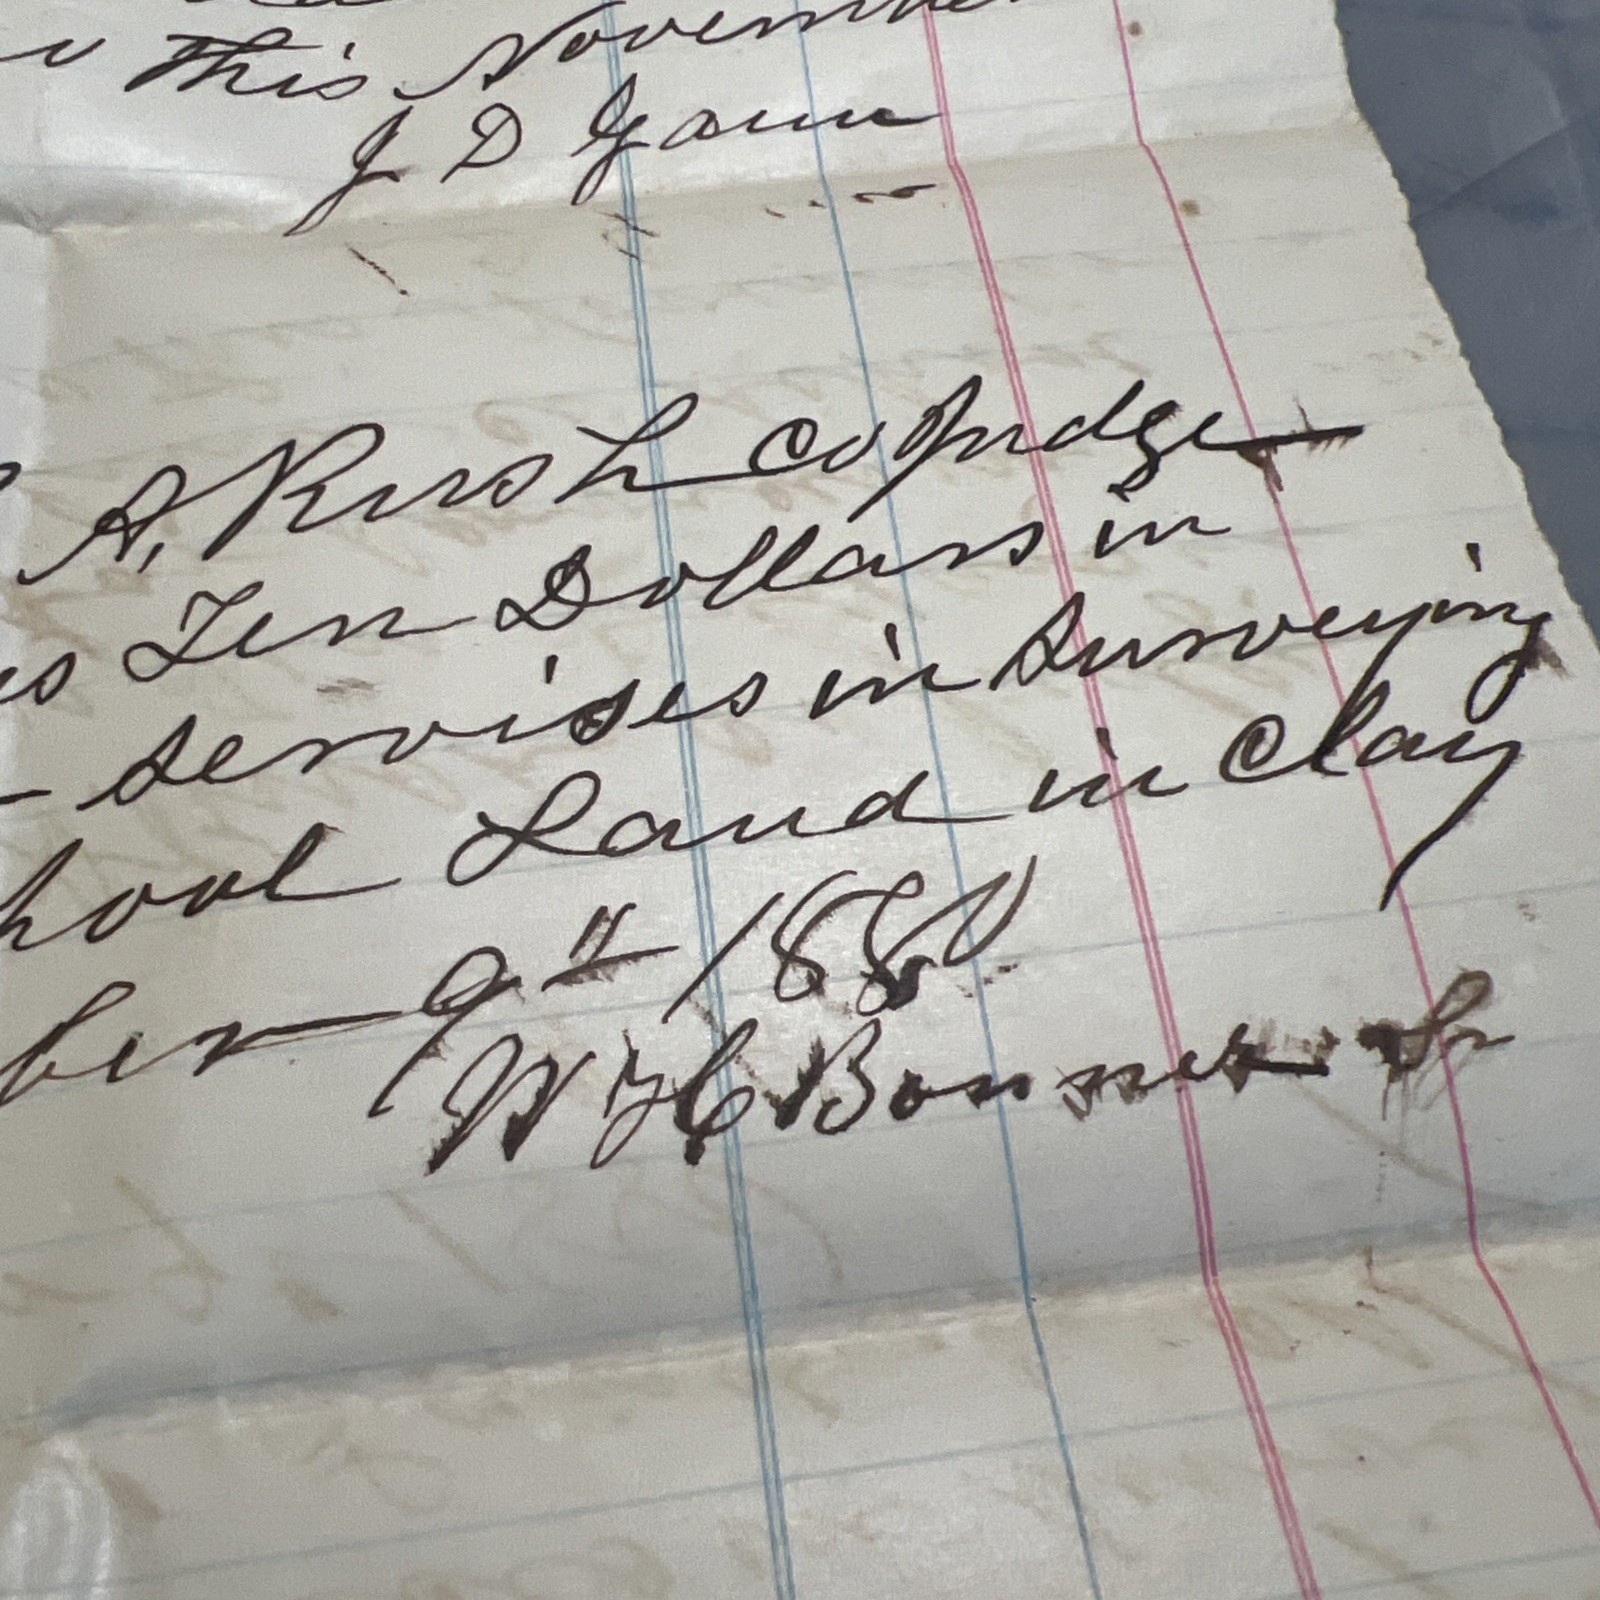 This November
J D Gann
A. Rush co Judge
es Ten Dollars in
servises in Surveying
hool Land in Clay
ber 9th 1880
Bonner Sr